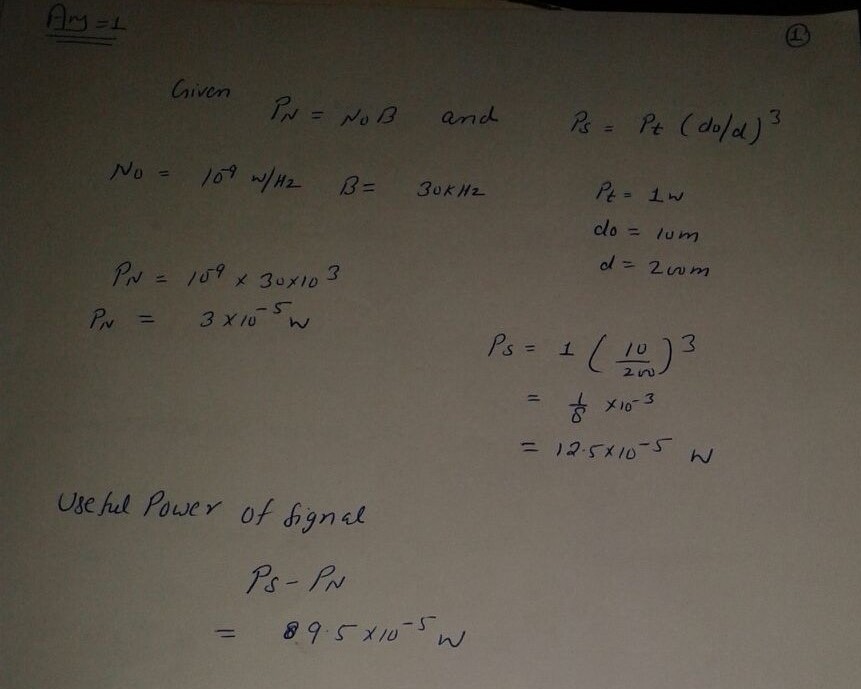 Ans = 1
①
Given
PN = N0B and Ps = Pt (do/d)³
N0 = 10⁻⁹ W/Hz B = 30KHz
Pt = 1w
do = 10m
d = 200m
PN = 10⁻⁹ × 30×10³
PN = 3 × 10⁻⁵ W
Ps = 1 (10/200)³
= 1/8 × 10⁻³
= 12.5×10⁻⁵ W
Useful Power of Signal
Ps - PN
= 9.5 × 10⁻⁵ W